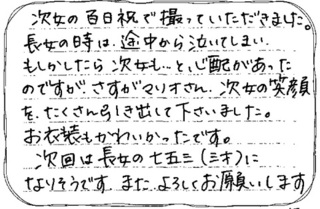 次女の百日祝で撮っていただきました。
長女の時は、途中から泣いてしまい
もしかしたら次女も…と、心配があった
のですが、さすがマリオさん、次女の笑顔
を、たくさん引き出して下さいました。
お衣装もかわいかったです。
次回は長女の七五三(三才)に
なりそうです。また、よろしくお願いします